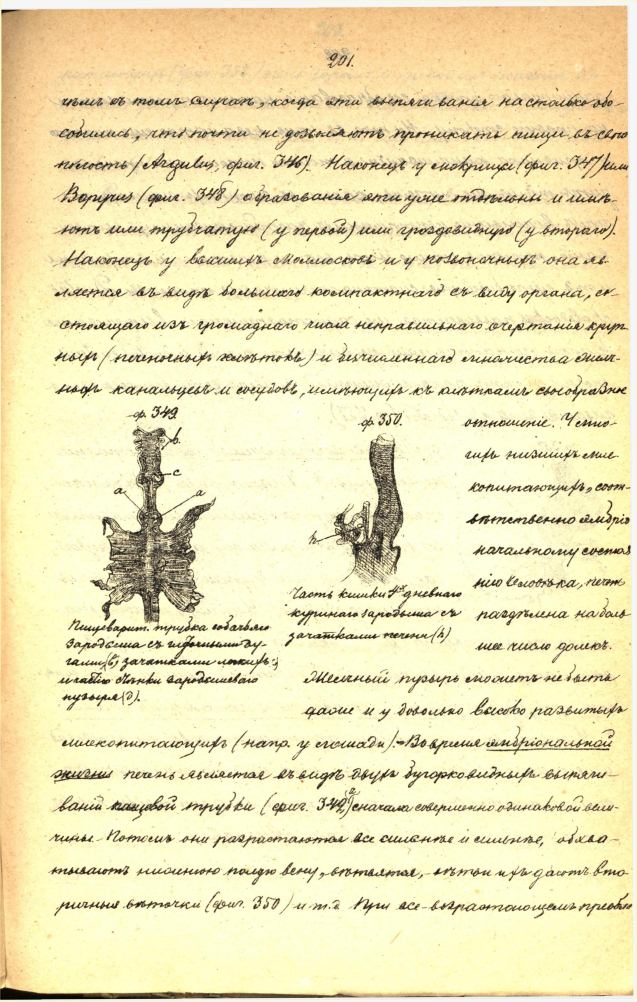 201.
чѣмъ въ томъ случаѣ, когда эти вытягиванія настолько обо-
собились, что почти не дозволяютъ проникать пищи въ свою
полость (Argulus, фиг. 346). Наконецъ у мокрицы (фиг. 347) или
Bopyrus (фиг. 348) образованія эти уже отдѣльны и имѣ-
ютъ или трубчатую (у первой) или гроздовидную (у втораго).
Наконецъ у высшихъ моллюсковъ и у позвоночныхъ она яв-
ляется въ видѣ большаго компактнаго съ виду органа, со-
стоящаго изъ громаднаго числа неправильнаго очертанія круп-
ныхъ (печеночныхъ клѣтокъ) и безчисленнаго множества желч-
ныхъ канальцевъ и сосудовъ, имѣющихъ къ клѣткамъ своеобразное
ф. 349.
b.
c
a
a
Пищеварит. трубка собачьяго
зародыша съ ду-
гами (b) зачатками легкихъ (c)
зародышеваго
пузыря (d).
ф. 350.
h
Часть кишки 4хъ дневнаго
куринаго зародыша съ
зачатками печени (h)
отношеніе. У мно-
гихъ низшихъ мле-
копитающихъ, соот-
вѣтственно эмбріо-
нальному состоя-
нію человѣка, печень
раздѣлена на боль-
шее число долекъ.
Желчный пузырь можетъ не быть
даже и у довольно высоко развитыхъ
млекопитающихъ (напр. у лошади). – Во время эмбріональной
жизни печень является въ видѣ двухъ бугорковидныхъ вытяги-
ваній трубки (фиг. 349, a) сначала совершенно одинаковой вели-
чины. Потомъ они разрастаются все сильнѣе и сильнѣе, обхва-
тываютъ нижнюю полую вену, вѣтвятся, вѣтви ихъ даютъ вто-
ричныя вѣточки (фиг. 350) и т.д. При все-возрастающемъ преобла-